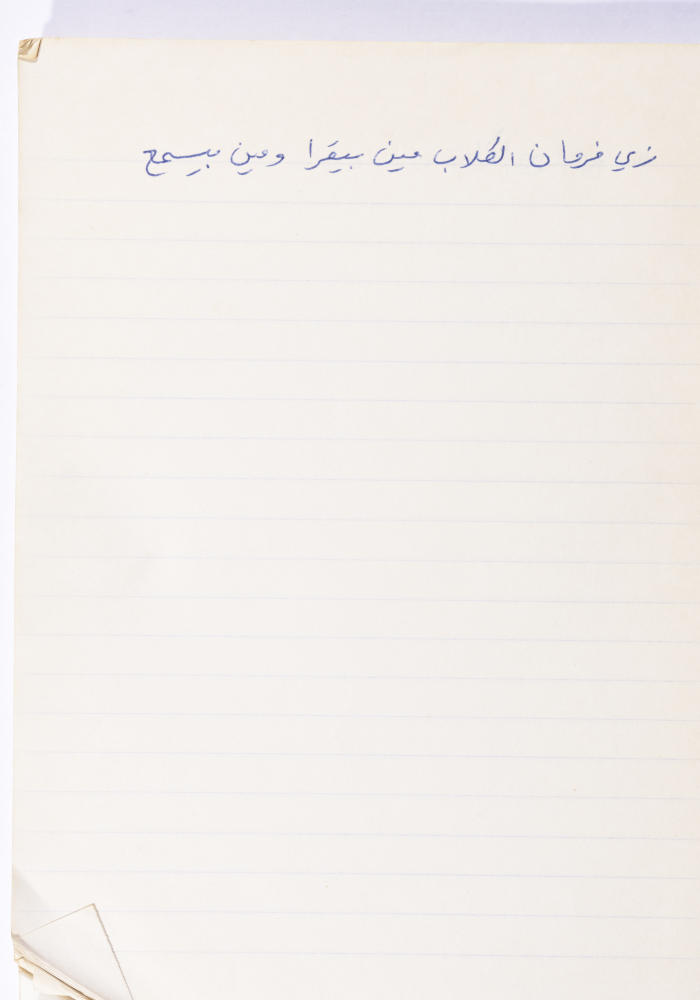 زي فرمان الكلاب مين بيقرا ومين بيسمع